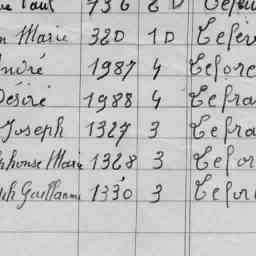 Paul 736 2 D
Marie 320 1D Lefèv
André 1987 4 Lefore
Désiré 1988 4 Lefra
Joseph 1327 3 Lefra
phonse Marie 1328 3 Lefor
ph Guillaume 1330 3 Lefor